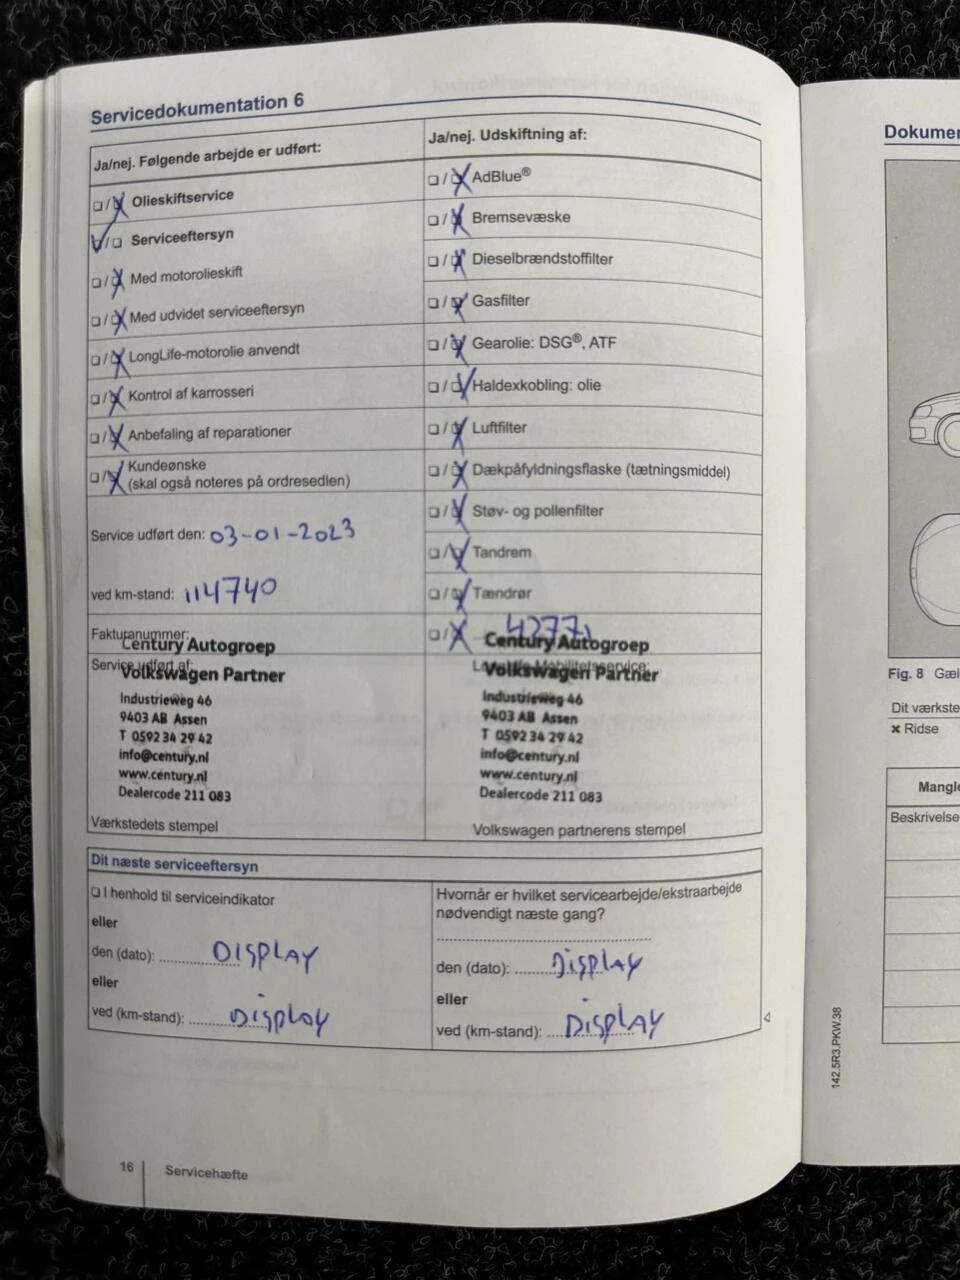 Servicedokumentation 6
Ja/nej. Følgende arbejde er udført:
❏ / ❏ Olieskiftservice
❏ / ❏ Serviceeftersyn
❏ / ❏ Med motorolieskift
❏ / ❏ Med udvidet serviceeftersyn
❏ / ❏ LongLife-motorolie anvendt
❏ / ❏ Kontrol af karrosseri
❏ / ❏ Anbefaling af reparationer
❏ / ❏ Kundeønske
(skal også noteres på ordresedlen)
Service udført den: 03-01-2023
ved km-stand: 114740
Fakturanummer:
Service udført af:
Century Autogroep
Volkswagen Partner
Industrieweg 46
9403 AB Assen
T 0592 34 29 42
info@century.nl
www.century.nl
Dealercode 211 083
Værkstedets stempel
Ja/nej. Udskiftning af:
❏ / ❏ AdBlue®
❏ / ❏ Bremsevæske
❏ / ❏ Dieselbrændstoffilter
❏ / ❏ Gasfilter
❏ / ❏ Gearolie: DSG®, ATF
❏ / ❏ Haldexkobling: olie
❏ / ❏ Luftfilter
❏ / ❏ Dækpåfyldningsflaske (tætningsmiddel)
❏ / ❏ Støv- og pollenfilter
❏ / ❏ Tandrem
❏ / ❏ Tændrør
❏ / ❏
Century Autogroep
Volkswagen Partner
Industrieweg 46
9403 AB Assen
T 0592 34 29 42
info@century.nl
www.century.nl
Dealercode 211 083
Volkswagen partnerens stempel
Dit næste serviceeftersyn
❏ I henhold til serviceindikator
eller
den (dato): DISPLAY
eller
ved (km-stand): DISPLAY
Hvornår er hvilket servicearbejde/ekstraarbejde
nødvendigt næste gang?
den (dato): DISPLAY
eller
ved (km-stand): DISPLAY
16 Servicehæfte
142.5R3.PKW.38
Fig. 8
Dit
× Ridse